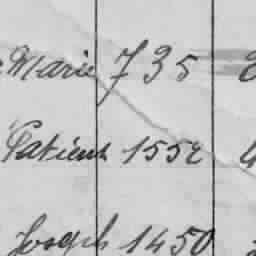 Marie 735
Patient 1552
Joseph 1450